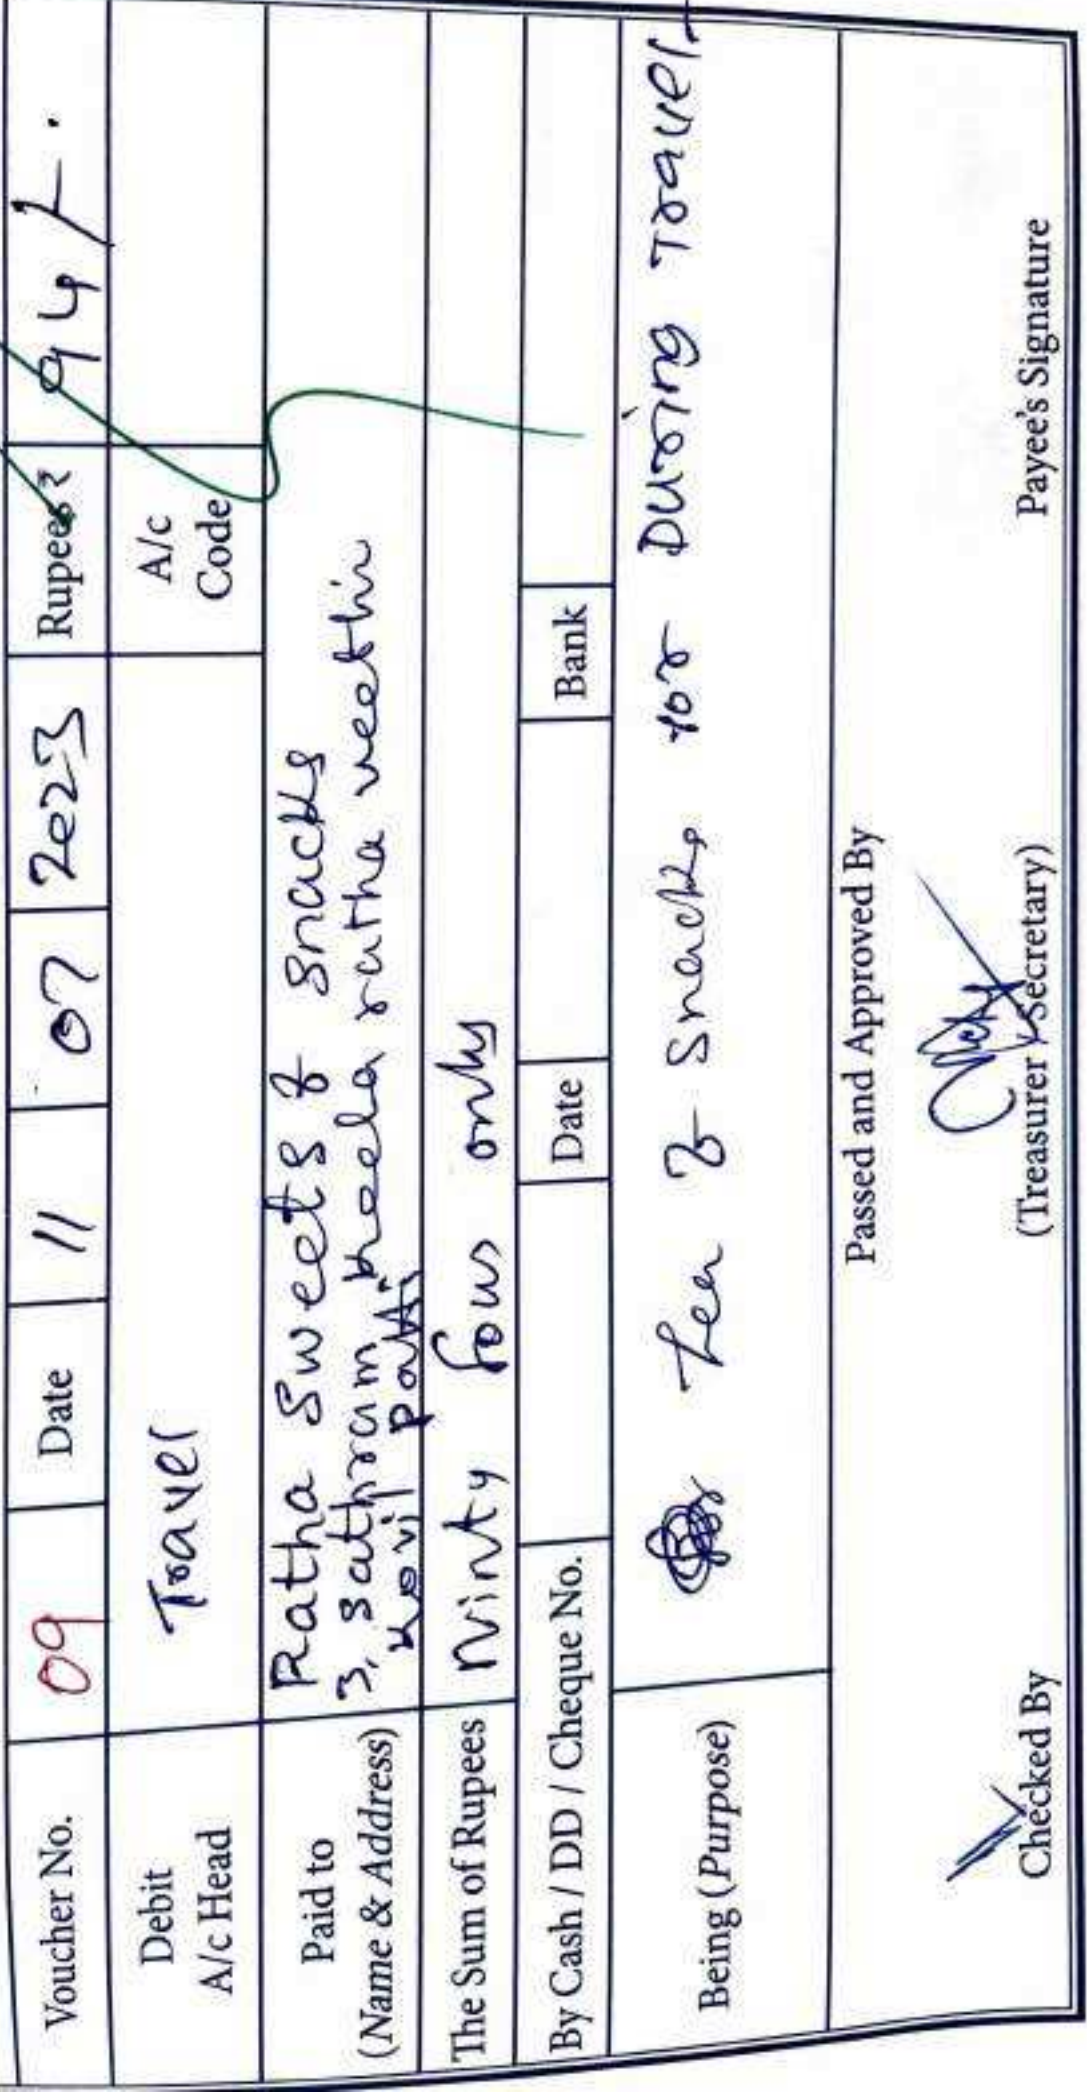 Voucher No. 09 Date 11 07 2023 Rupees ₹ 94/-.
Debit A/c Head Travel A/c Code
Paid to (Name & Address) Ratha Sweets & Snacks
3, Sathram keela ratha veethi
kovil patti
The Sum of Rupees Ninty four only
By Cash / DD / Cheque No. Date Bank
Being (Purpose) Tea & Snacks for During Travel
Passed and Approved By
Checked By (Treasurer / Secretary) Payee's Signature